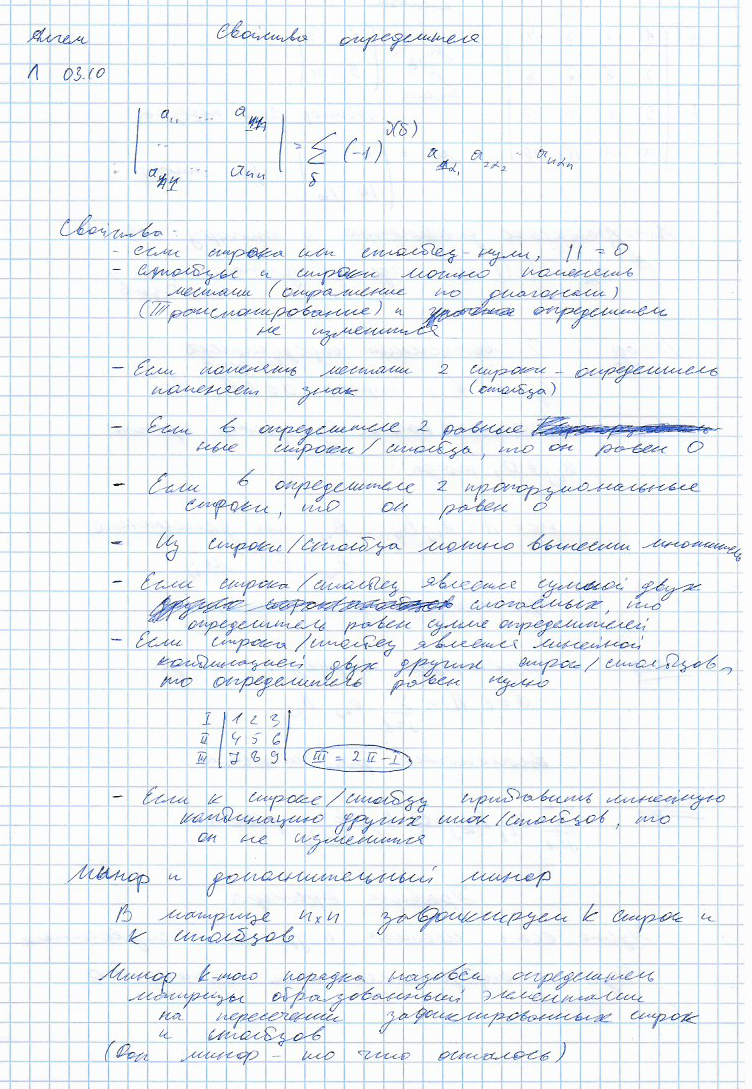 Алгем Свойства определителя
Л 03.10
| a₁₁ ... a₁ₙ |
| ... | = Σ (-1) a₁α₁ a₂α₂ ... aₙαₙ
| aₙ₁ ... aₙₙ | δ
Свойства:
- если строка или столбец - нули, | | = 0
- Столбцы и строки можно поменять
местами (отражение по диагонали)
(Транспонирование) и определитель
не изменится
- Если поменять местами 2 строки - определитель
поменяет знак (столбца)
- Если в определителе 2 равные
ные строки/столбца, то он равен 0
- Если в определителе 2 пропорциональные
строки, то он равен 0
- Из строки/столбца можно вынести множитель
- Если строка/столбец является суммой двух
слагаемых, то
определитель равен сумме определителей
- Если строка/столбец является линейной
комбинацией двух других строк/столбцов,
то определитель равен нулю
I | 1 2 3 |
II | 4 5 6 |
III | 7 8 9 | III = 2 II - I
- Если к строке/столбцу прибавить линейную
комбинацию других строк/столбцов, то
он не изменится
Минор и дополнительный минор
В матрице n×n зафиксируем k строк и
k столбцов
Минор k-того порядка назовём определитель
матрицы образованный элементами
на пересечении зафиксированных строк
и столбцов
(Доп минор - то что осталось)